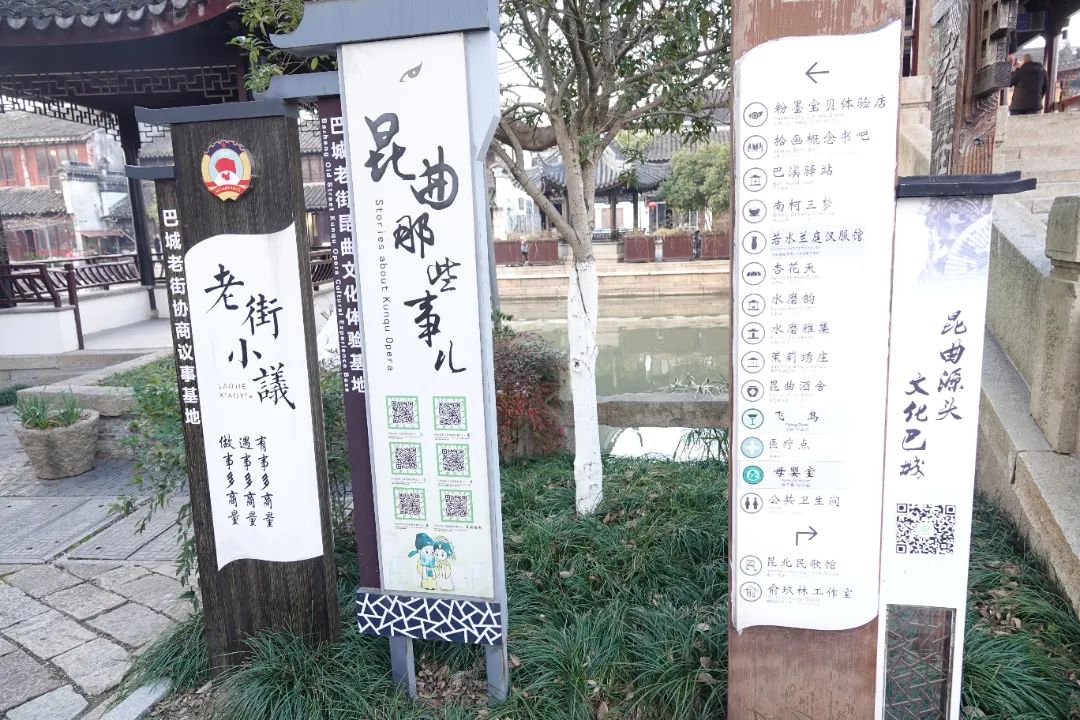 巴城老街协商议事基地
老街小議
LAOJIE
XIAOYI
有事多商量
遇事多商量
做事多商量
巴城老街昆曲文化体验基地
Bacheng Old Street Kunqu Opera Cultural Experience Base
昆曲那些事儿
Stories about Kunqu Opera
粉墨宝贝体验店
拾画概念书吧
巴溪驿站
南柯三梦
若水兰庭汉服馆
杏花天
水磨韵
水磨雅集
茉莉绣庄
昆曲酒舍
飞鸟
医疗点
母婴室
公共卫生间
昆北民歌馆
俞玖林工作室
昆曲源头
文化巴城